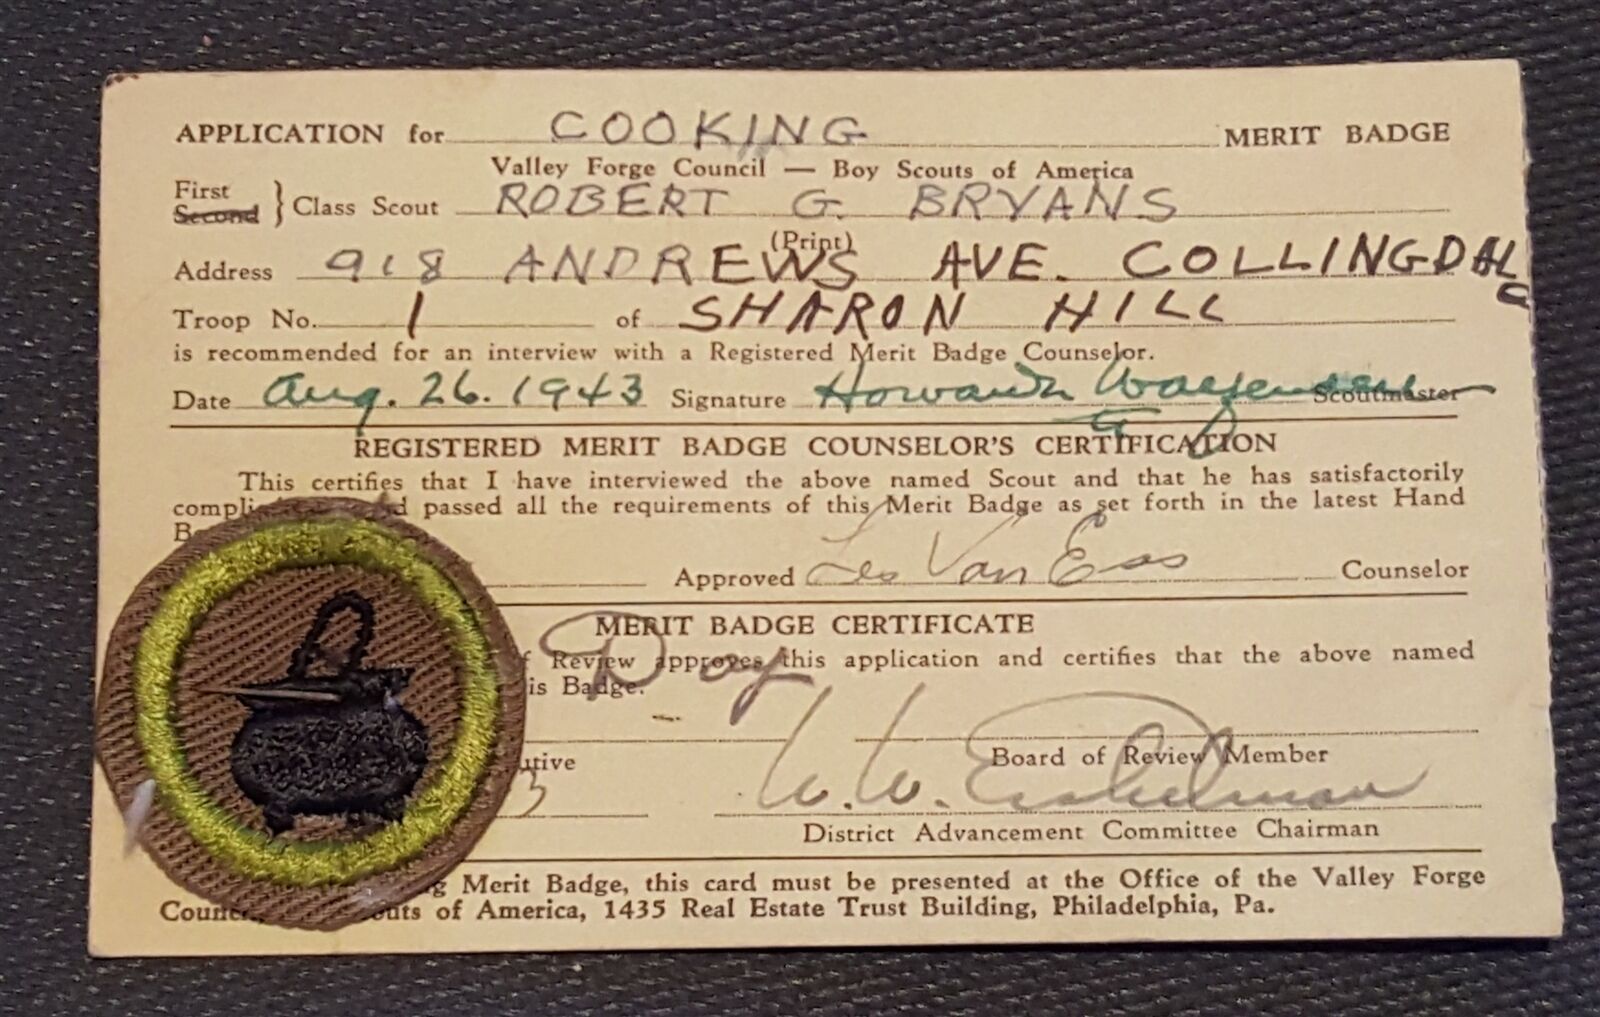 APPLICATION for COOKING MERIT BADGE
Valley Forge Council — Boy Scouts of America
First
Second } Class Scout ROBERT G. BRYANS
(Print)
Address 918 ANDREWS AVE. COLLINGDALE
Troop No. 1 of SHARON HILL
is recommended for an interview with a Registered Merit Badge Counselor.
Date Aug. 26. 1943 Signature Scoutmaster
REGISTERED MERIT BADGE COUNSELOR'S CERTIFICATION
This certifies that I have interviewed the above named Scout and that he has satisfactorily
passed all the requirements of this Merit Badge as set forth in the latest Hand
Approved Les Van Ess Counselor
MERIT BADGE CERTIFICATE
Review approves this application and certifies that the above named
Badge.
Board of Review Member
W. W.
District Advancement Committee Chairman
Merit Badge, this card must be presented at the Office of the Valley Forge
of America, 1435 Real Estate Trust Building, Philadelphia, Pa.